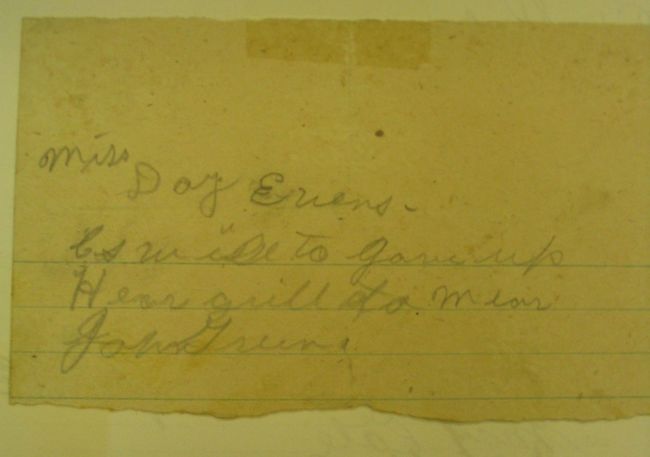 Miss
Doy Eviens.
Es wille to gave up
Hear guill to mear
John Green.